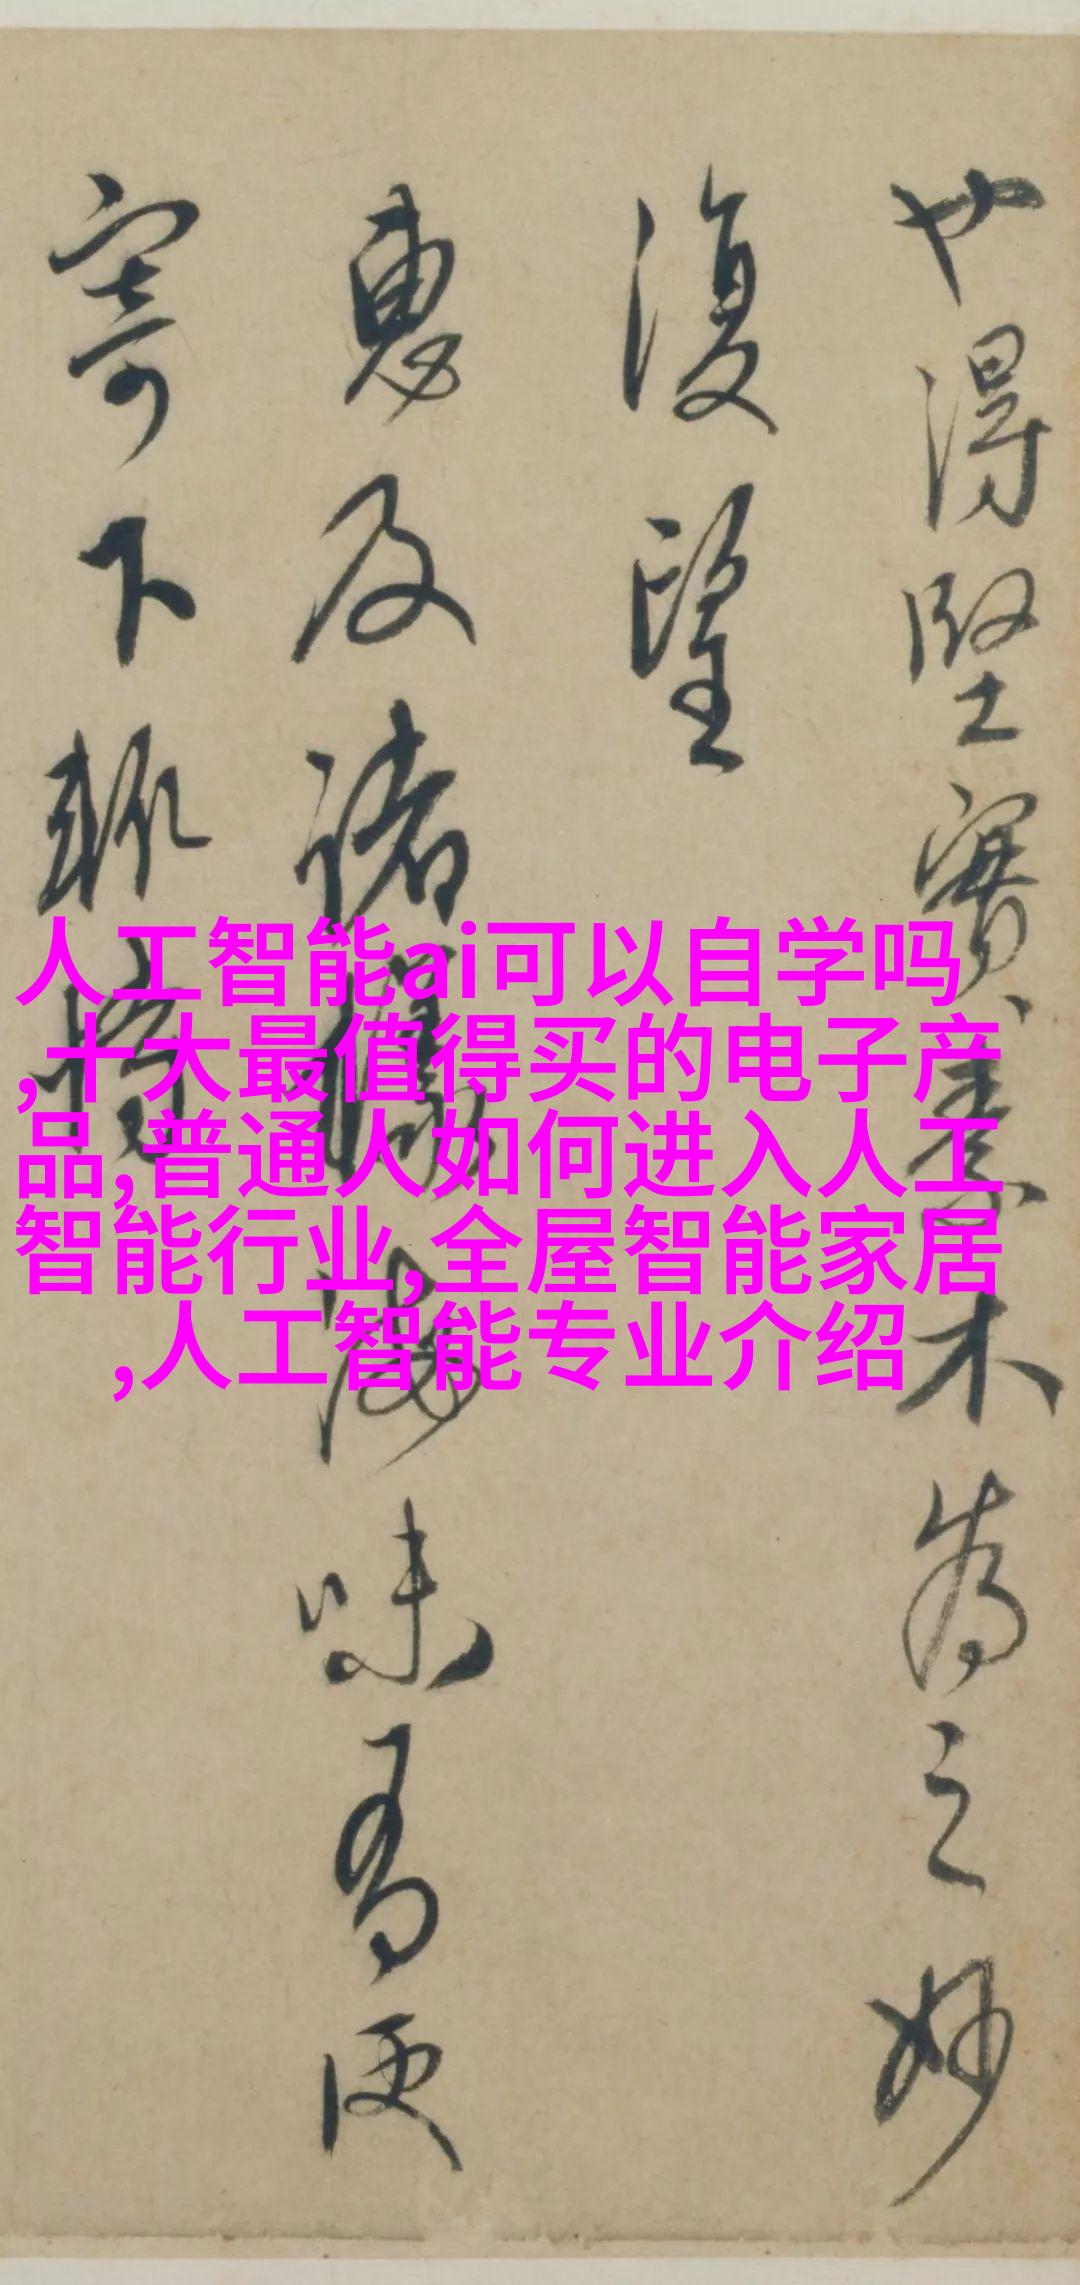 也得堅實木為之妙
復望
惠及諸海味有便
寄下輒恃
人工智能ai可以自学吗
,十大最值得买的电子产
品,普通人如何进入人工
智能行业,全屋智能家居
,人工智能专业介绍